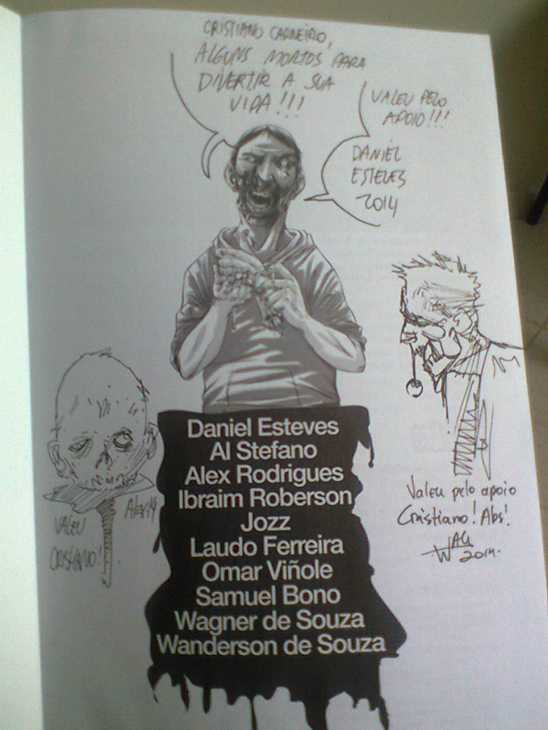 CRISTIANO CARNEIRO,
ALGUNS MORTOS PARA
DIVERTIR A SUA
VIDA!!!
VALEU PELO
APOIO!!!
DANIEL
ESTEVES
2014
Daniel Esteves
Al Stefano
Alex Rodrigues
Ibraim Roberson
Jozz
Laudo Ferreira
Omar Viñole
Samuel Bono
Wagner de Souza
Wanderson de Souza
VALEU
CRISTIANO!
Valeu pelo apoio
Cristiano! Abs!
2014